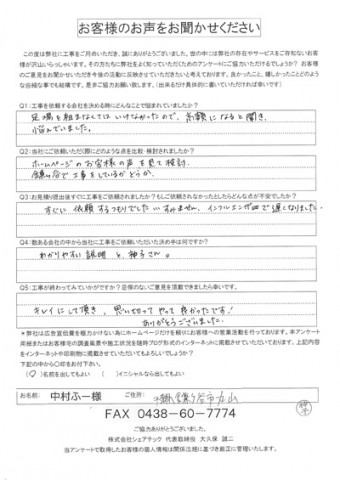 お客様のお声をお聞かせください
この度は弊社に工事をご用命いただき、誠にありがとうございました。世の中には弊社の存在やサービスをご存知ないお客
様が沢山いらっしゃいます。その方たちに弊社をよく知っていただくためのアンケートにご協力いただけるでしょうか？ お客
様のご意見をお聞かせいただき今後の活動に反映させていただきたいと考えております。良かったこと、嬉しかったことどのよう
な些細な事でも結構です。是非ご協力お願い致します。（出来るだけ具体的に書いていただければ幸いです）
Q1：工事を依頼する会社を決める時にどんなことで悩まれていましたか？
足場を組まなくてはいけなかったので、高額になると聞き、
悩んでいました。
Q2：当社にご依頼いただく際にどのような点を比較・検討されましたか？
ホームページのお客様の声を見て検討。
工事をしているかどうか。
Q3：お見積り提出後すぐに工事をご依頼されましたか？もしご依頼されなかったとしたらどんな点が不安でしたか？
すぐに依頼するつもりでした。すみません、インフルエンザで遅くなりました。
Q4：数ある会社の中から当社に工事を依頼いただいた決め手は何ですか？
わかりやすい説明と、神子さん。
Q5：工事が終わってみていかがですか？忌憚のないご意見を頂戴できましたら幸いです。
キレイにして頂き、思い切ってやって良かったです！
ありがとうございました。
＊弊社は広告宣伝費を極力かけない為にホームページだけを頼りにお客様への営業活動を行っております。本アンケート
用紙またはお客様宅の調査風景や施工状況を随時ブログ形式のインターネットに掲載させていただいております。上記内容
をインターネットや印刷物に掲載させていただいてもよろしいでしょうか？
下記の中から〇印をお付け下さい。
（〇）名前を出してもよい （ ）イニシャルなら出してもよい
お名前: 中村ふー様 ご住所:
FAX 0438-60-7774
ご協力ありがとうございました。
株式会社シェアテック 代表取締役 大久保 誠二
当アンケートで取得したお客様の個人情報は関係法規に基づき厳正に管理いたします。